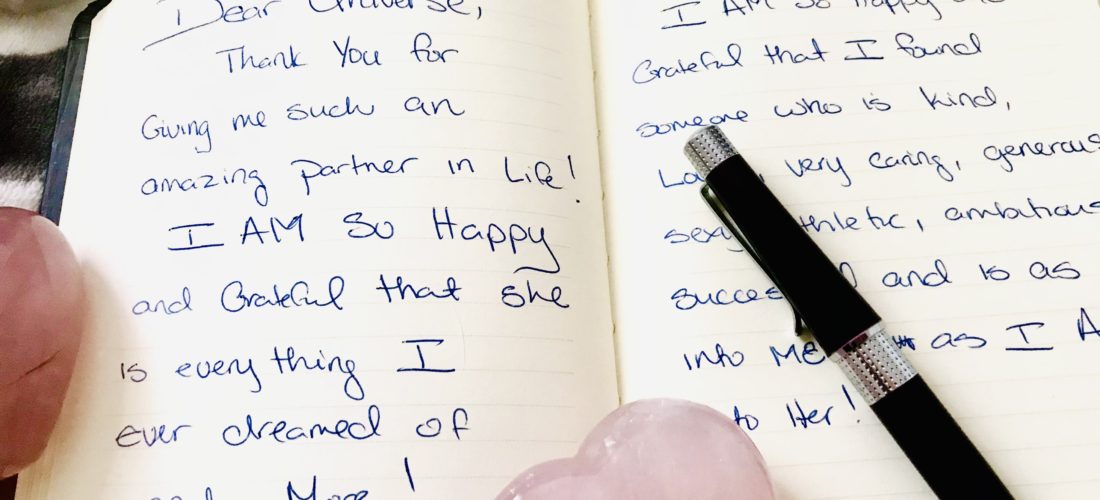 Dear Universe,
Thank You for
Giving me such an
amazing partner in Life!
I AM So Happy
and Grateful that she
is everything I
ever dreamed of
More!
I AM so happy
Grateful that I found
someone who is kind,
very caring, generous
ambitious
and is as
into ME as I
to Her!